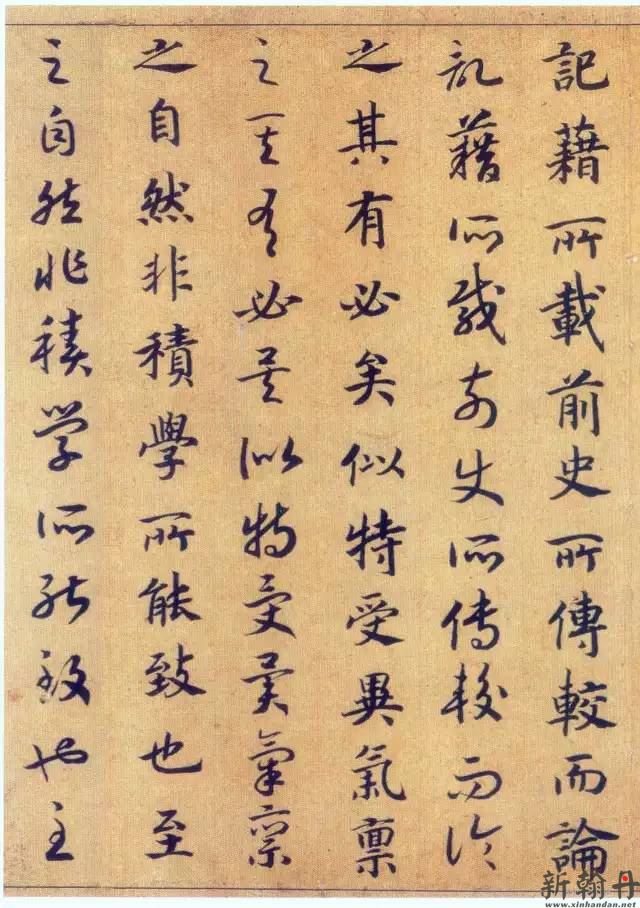 記藉所載前史所傳較而論
記藉所載前史所傳較而論
之其有必矣似特受異氣禀
之其有必矣似特受異氣禀
之自然非積學所能致也至
之自然非積學所能致也至
新翰丹
www.xinhandan.net